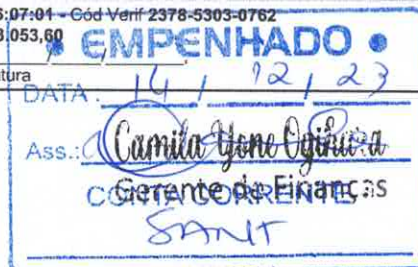 6:07:01 - Cód Verif 2378-5303-0762
3.053,60
• EMPENHADO •
tura
DATA: 14 / 12 / 23
Ass.: Camila Yone Ogihara
Gerente de Finanças
CONTA CORRENTE
SANT